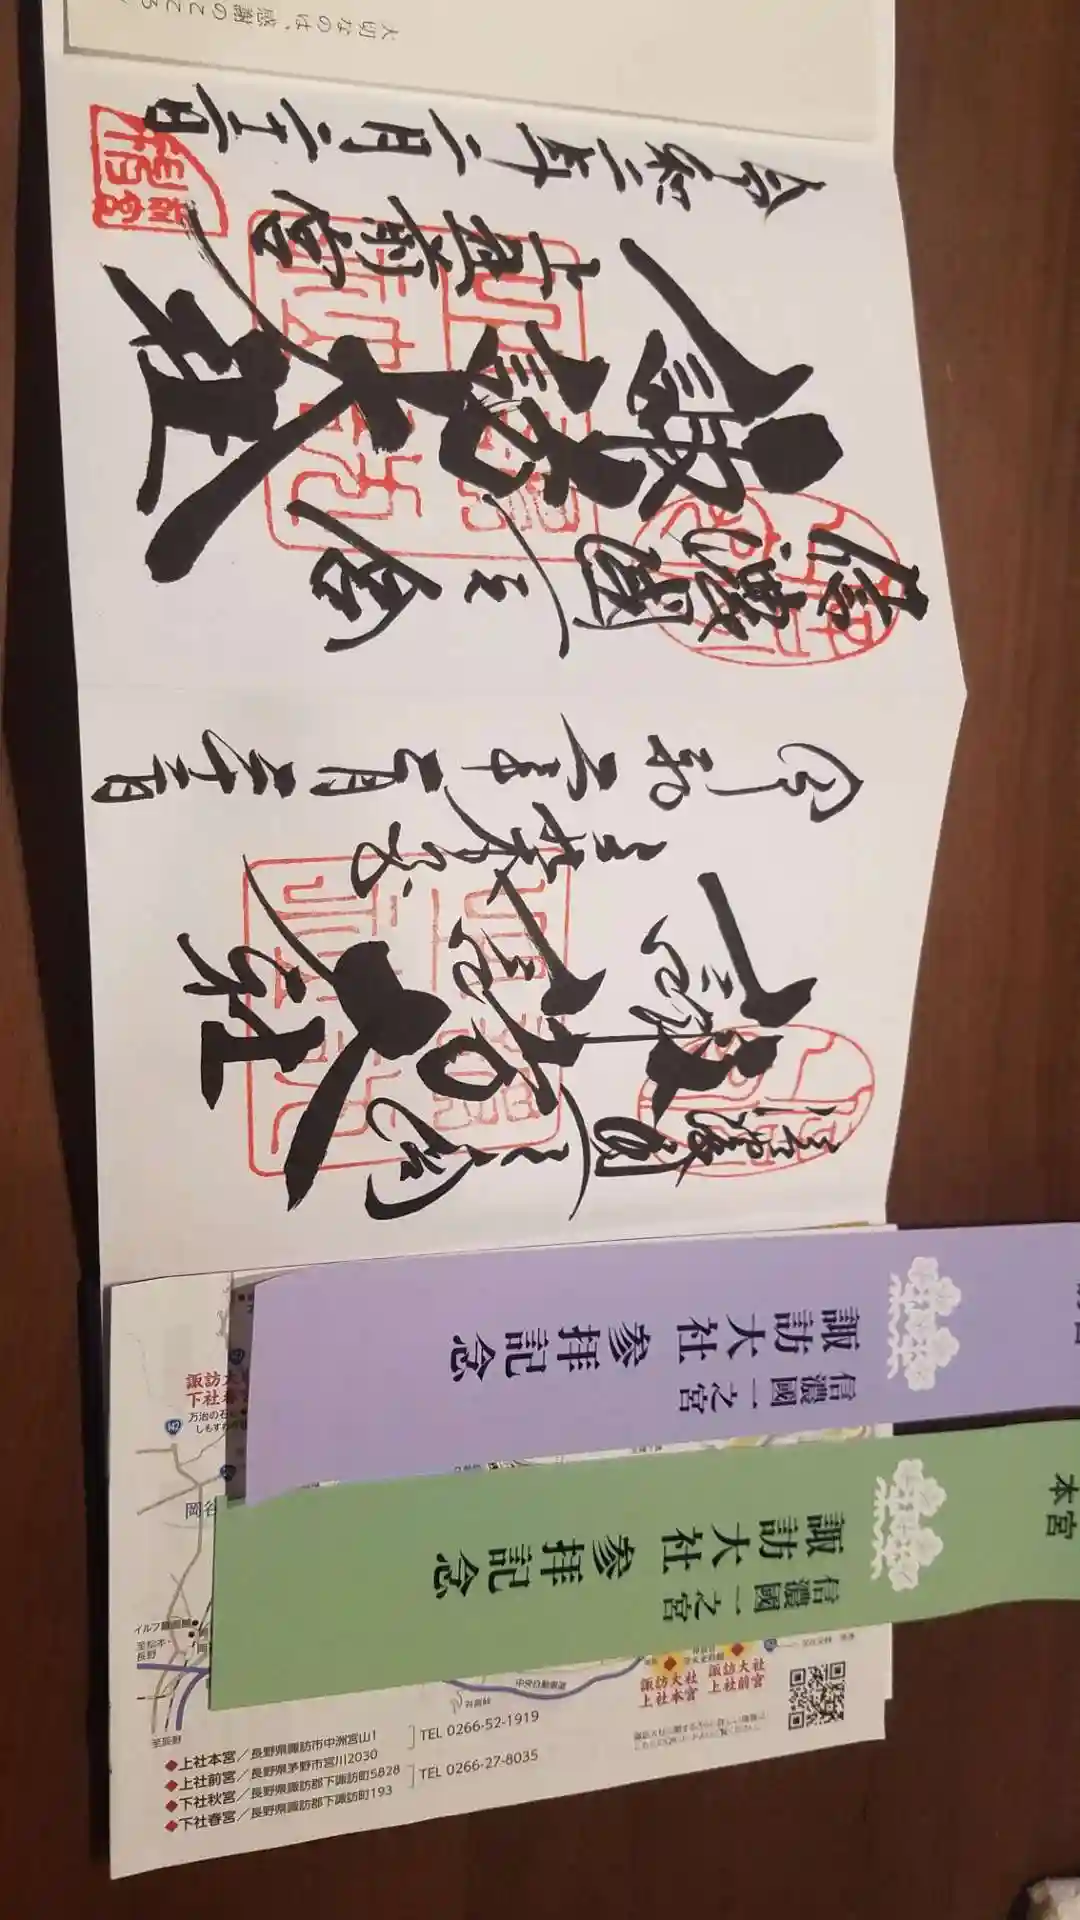 大切なのは、感謝のこころ
信濃國一之宮
諏訪大社
上社前宮
令和二年二月二十二日
信濃國一之宮
諏訪大社
上社本宮
令和二年二月二十二日
信濃國一之宮
諏訪大社 参拝記念
本宮
信濃國一之宮
諏訪大社 参拝記念
諏訪大
下社春
万治の石
しもすわ
142
岡谷
イルフ童画館
至松本・
長野
至辰野
中央自動車道
諏訪大社
上社本宮
諏訪大社
上社前宮
◆上社本宮／長野県諏訪市中洲宮山1
◆上社前宮／長野県茅野市宮川2030
TEL 0266-52-1919
◆下社秋宮／長野県諏訪郡下諏訪町5828
◆下社春宮／長野県諏訪郡下諏訪町193
TEL 0266-27-8035